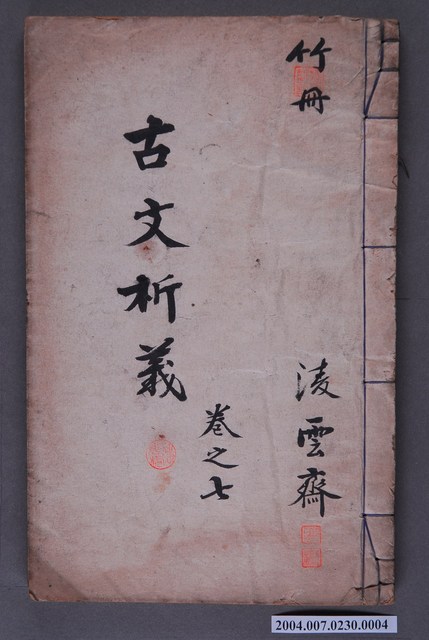 竹冊
凌雲齋
古文析義
卷之七
2004.007.0230.0004